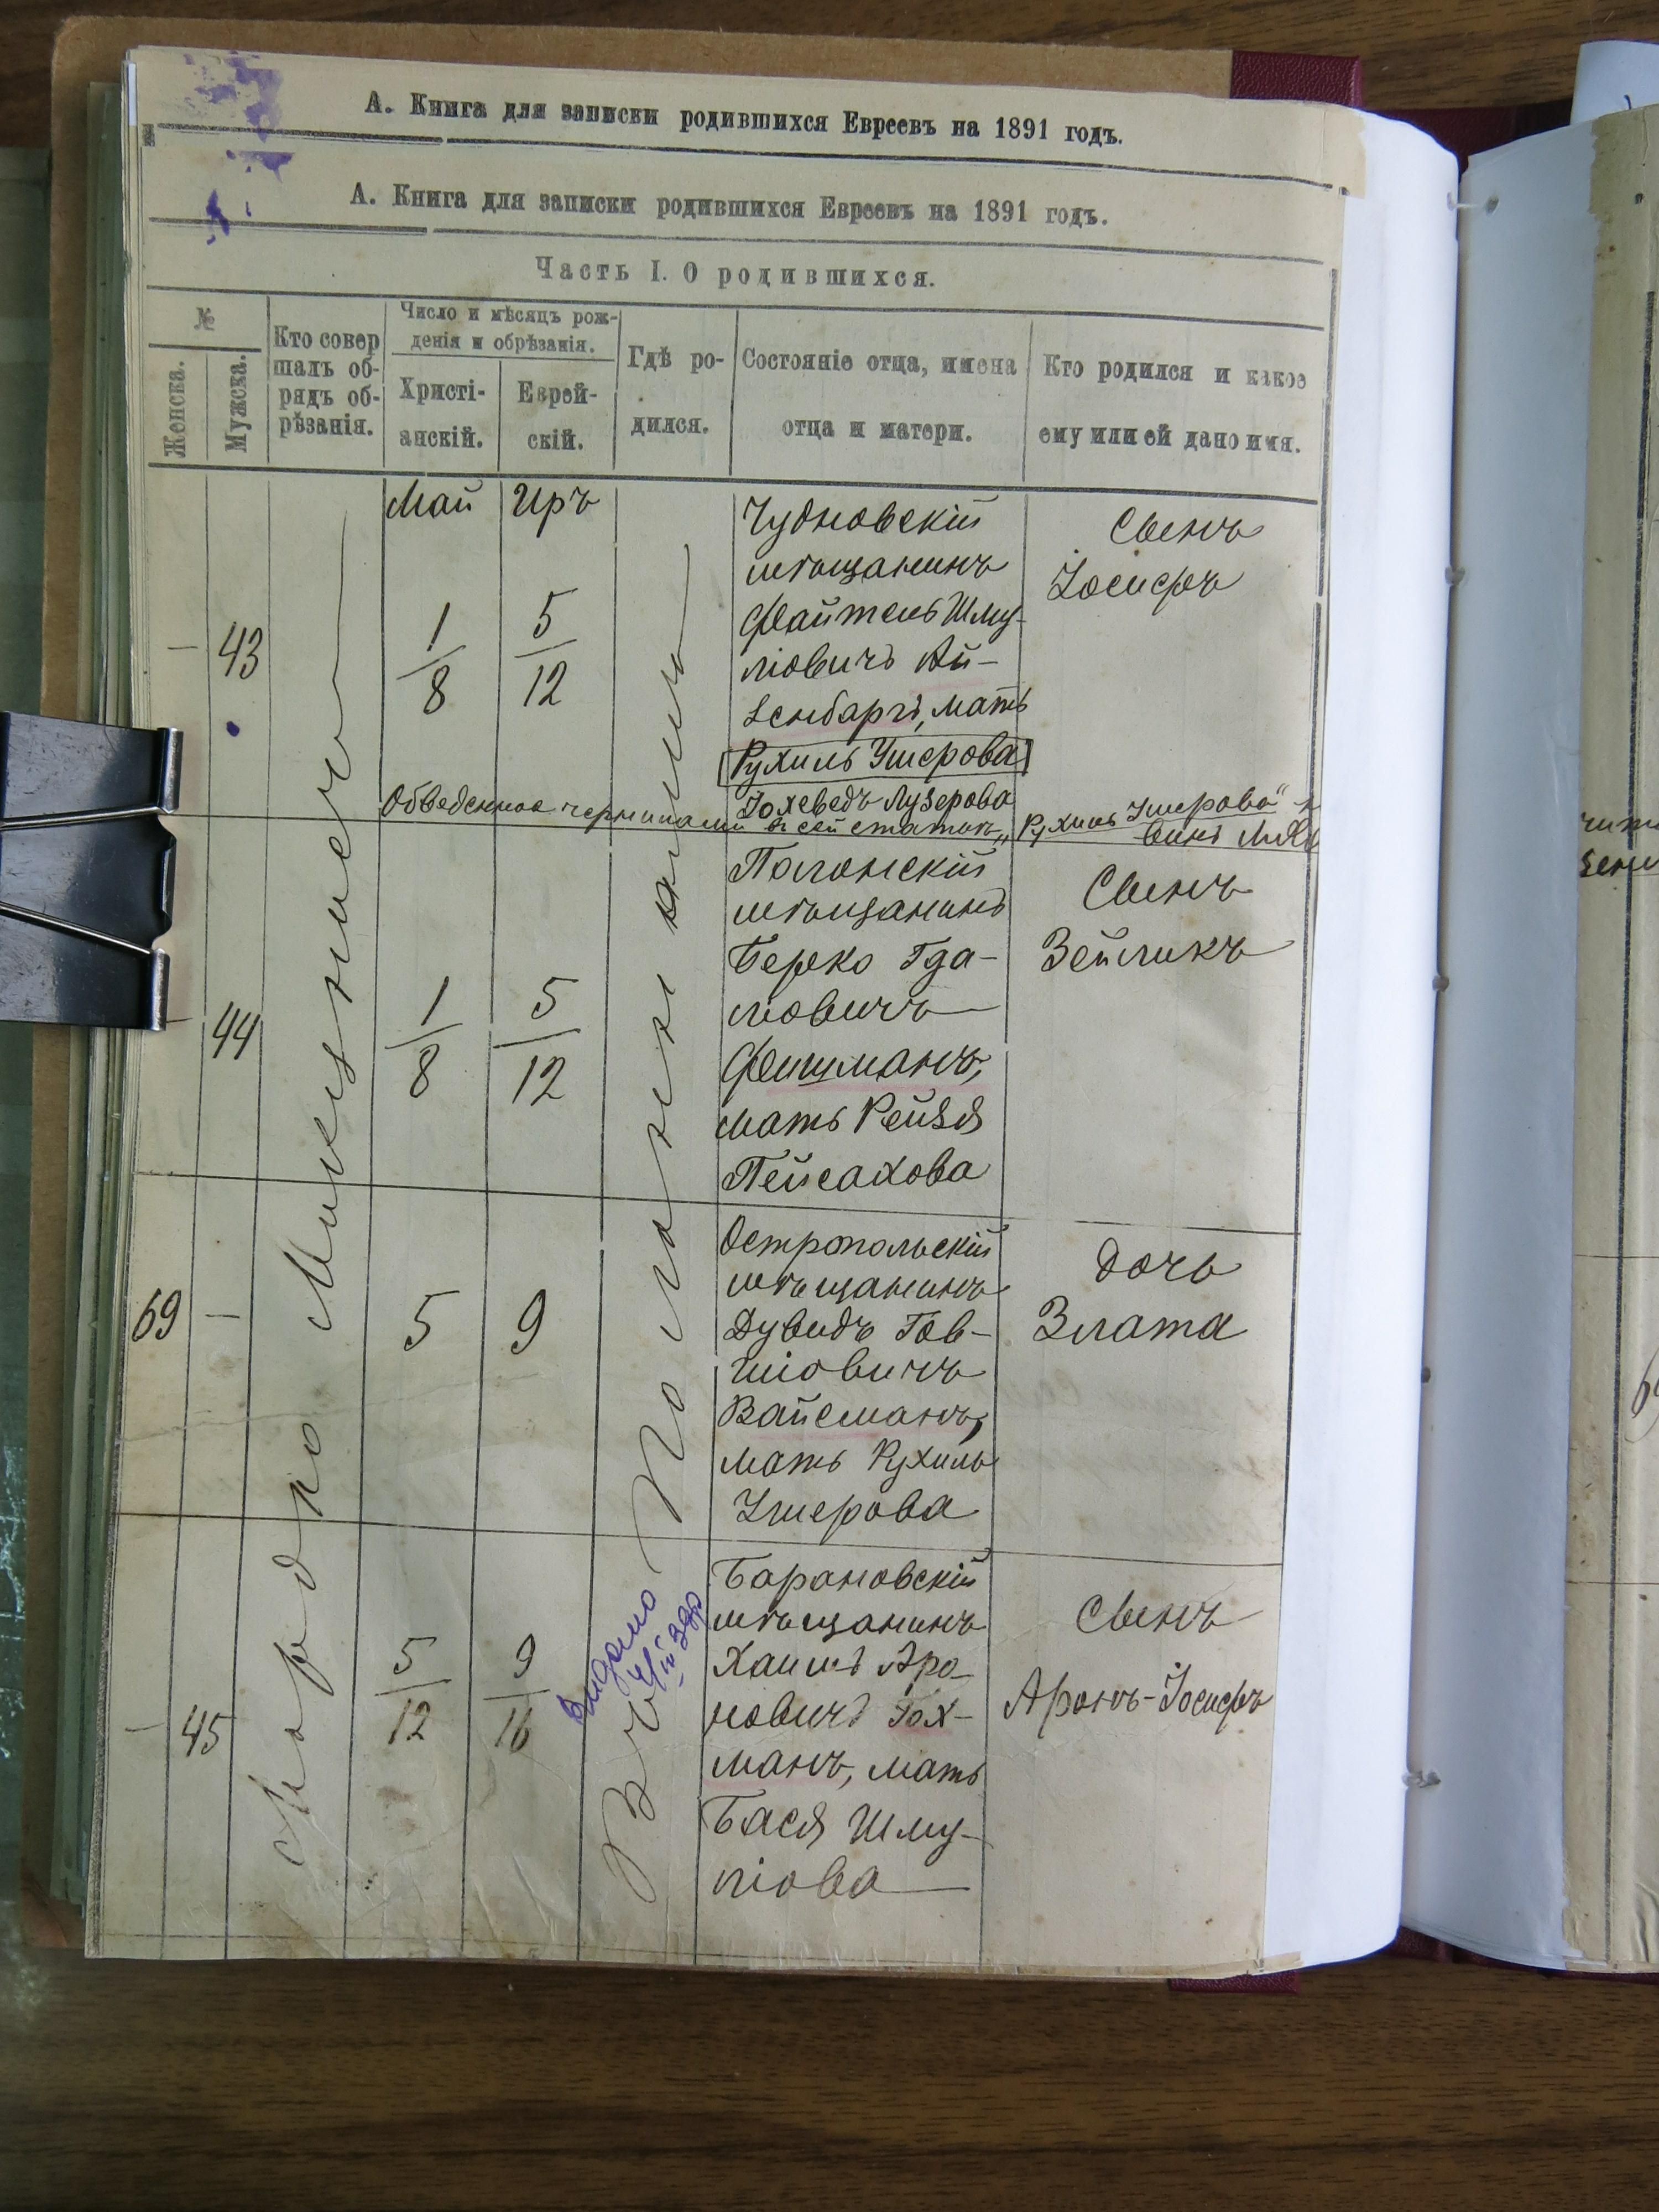 А. Книга для записки родившихся Евреевъ на 1891 годъ.
А. Книга для записки родившихся Евреевъ на 1891 годъ.
Часть I. О родившихся.
№
Женска.
Мужска.
Кто совер
шалъ об-
рядъ об-
рѣзанія.
Число и мѣсяцъ рож-
денія и обрѣзанія.
Христі-
анскій.
Еврей-
скій.
Гдѣ ро-
дился.
Состояніе отца, имена
отца и матери.
Кто родился и какое
ему или ей дано имя.
Май
Иръ
— 43
1
8
5
12
Чудновскій
мѣщанинъ
Файтель Шму-
ліовичъ Ай-
зенбаргъ, мать
Рухиль Ушерова
Іохеведъ Лузерова
Сынъ
Іосифъ
Обведенное чернилами въ сей статьи „Рухиль Ушерова"
— 44
1
8
5
12
Полонскій
мѣщанинъ
Берко Гда-
ліовичъ
Фишманъ,
мать Рейзя
Пейсахова
Сынъ
Зейликъ
69 —
5
9
Остропольскій
мѣщанинъ
Дувидъ Гов-
шіовичъ
Вайсманъ,
мать Рухиль
Ушерова
Дочь
Злата
— 45
5
12
9
16
Барановскій
мѣщанинъ
Хаимъ Аро-
новичъ Гох-
манъ, мать
Бася Шму-
ліова
Сынъ
Аронъ-Іосифъ
Мордко
Въ
Видано